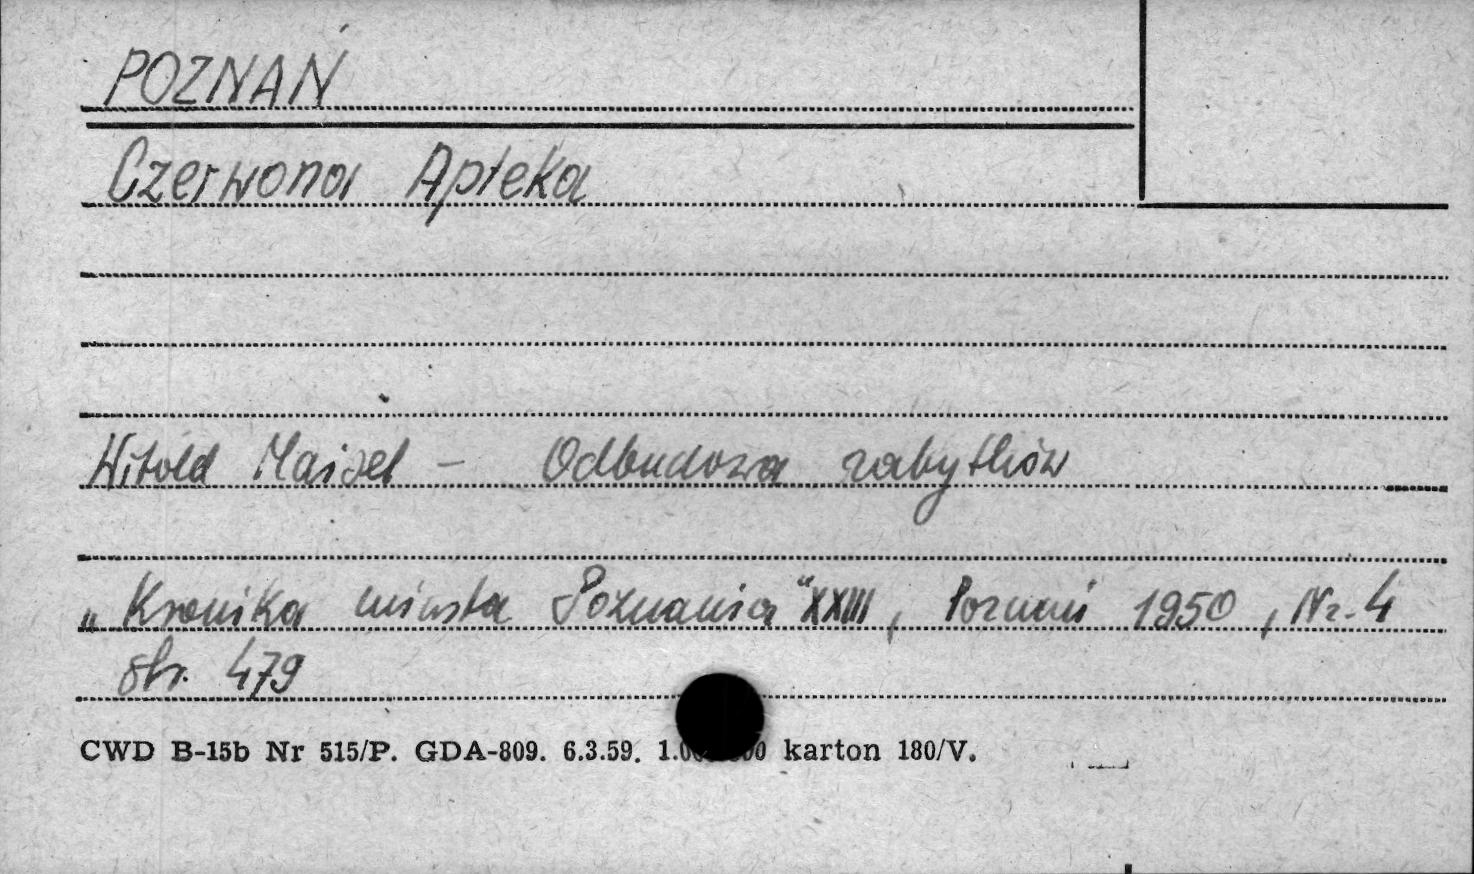 POZNAŃ
Czerwona Apteka
Witold Maisel - Odbudowa zabytków
„Kronika miasta Poznania" XXIII, Poznań 1950, Nr. 4
str. 479
CWD B-15b Nr 515/P. GDA-809. 6.3.59. karton 180/V.